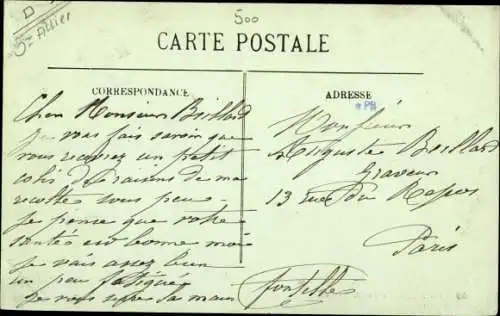 D
Dt Allier
500
CARTE POSTALE
CORRESPONDANCE
ADRESSE
*PH
Cher Monsieur Brillard
je vous fais savoir que
vous recevrez un petit
colis de raisins de ma
recolte sous peu
je pense que votre
santé est bonne moi
je vais assez bien
un peu fatigué
je vous serre la main
Monsieur
Auguste Brillard
Graveur
13 rue du Repos
Paris